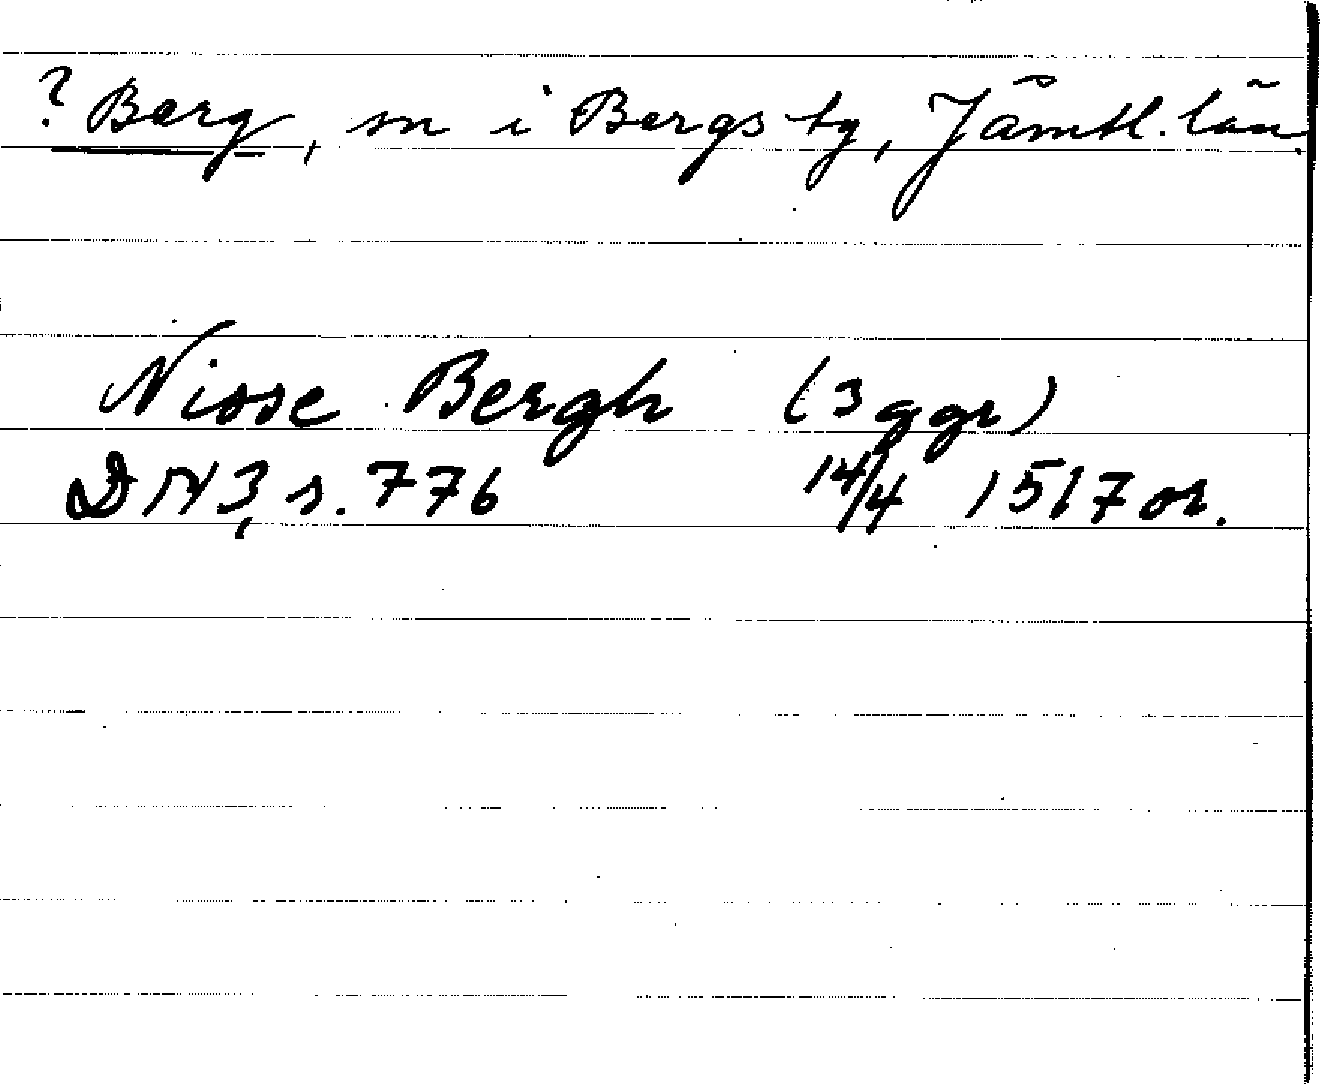 ? Berg, sn i Bergs tg, Jämtl. län.
Nisse Bergh (3 ggr)
DN 3, s. 776 14/4 1517 or.